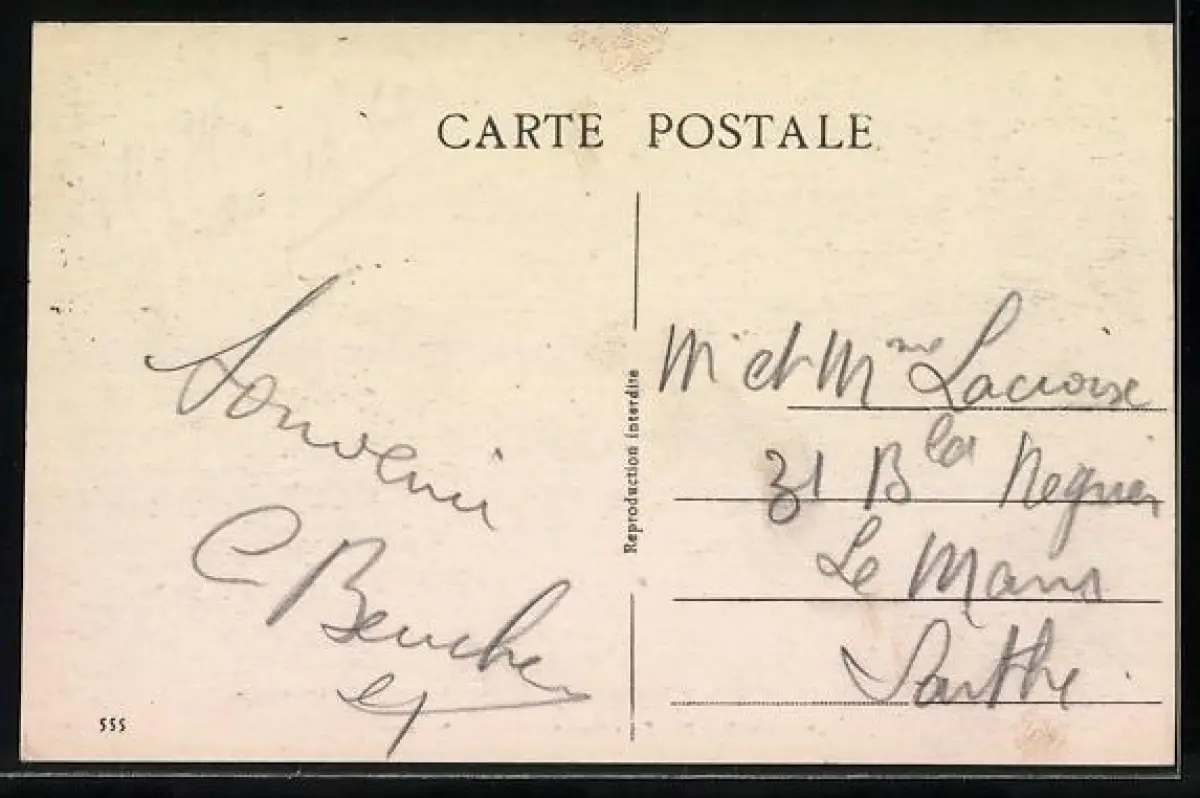 CARTE POSTALE
Souvenir
C Beucher
555
Reproduction interdite
Mr et Mme Lacroix
31 Bld Negrier
Le Mans
Sarthe.